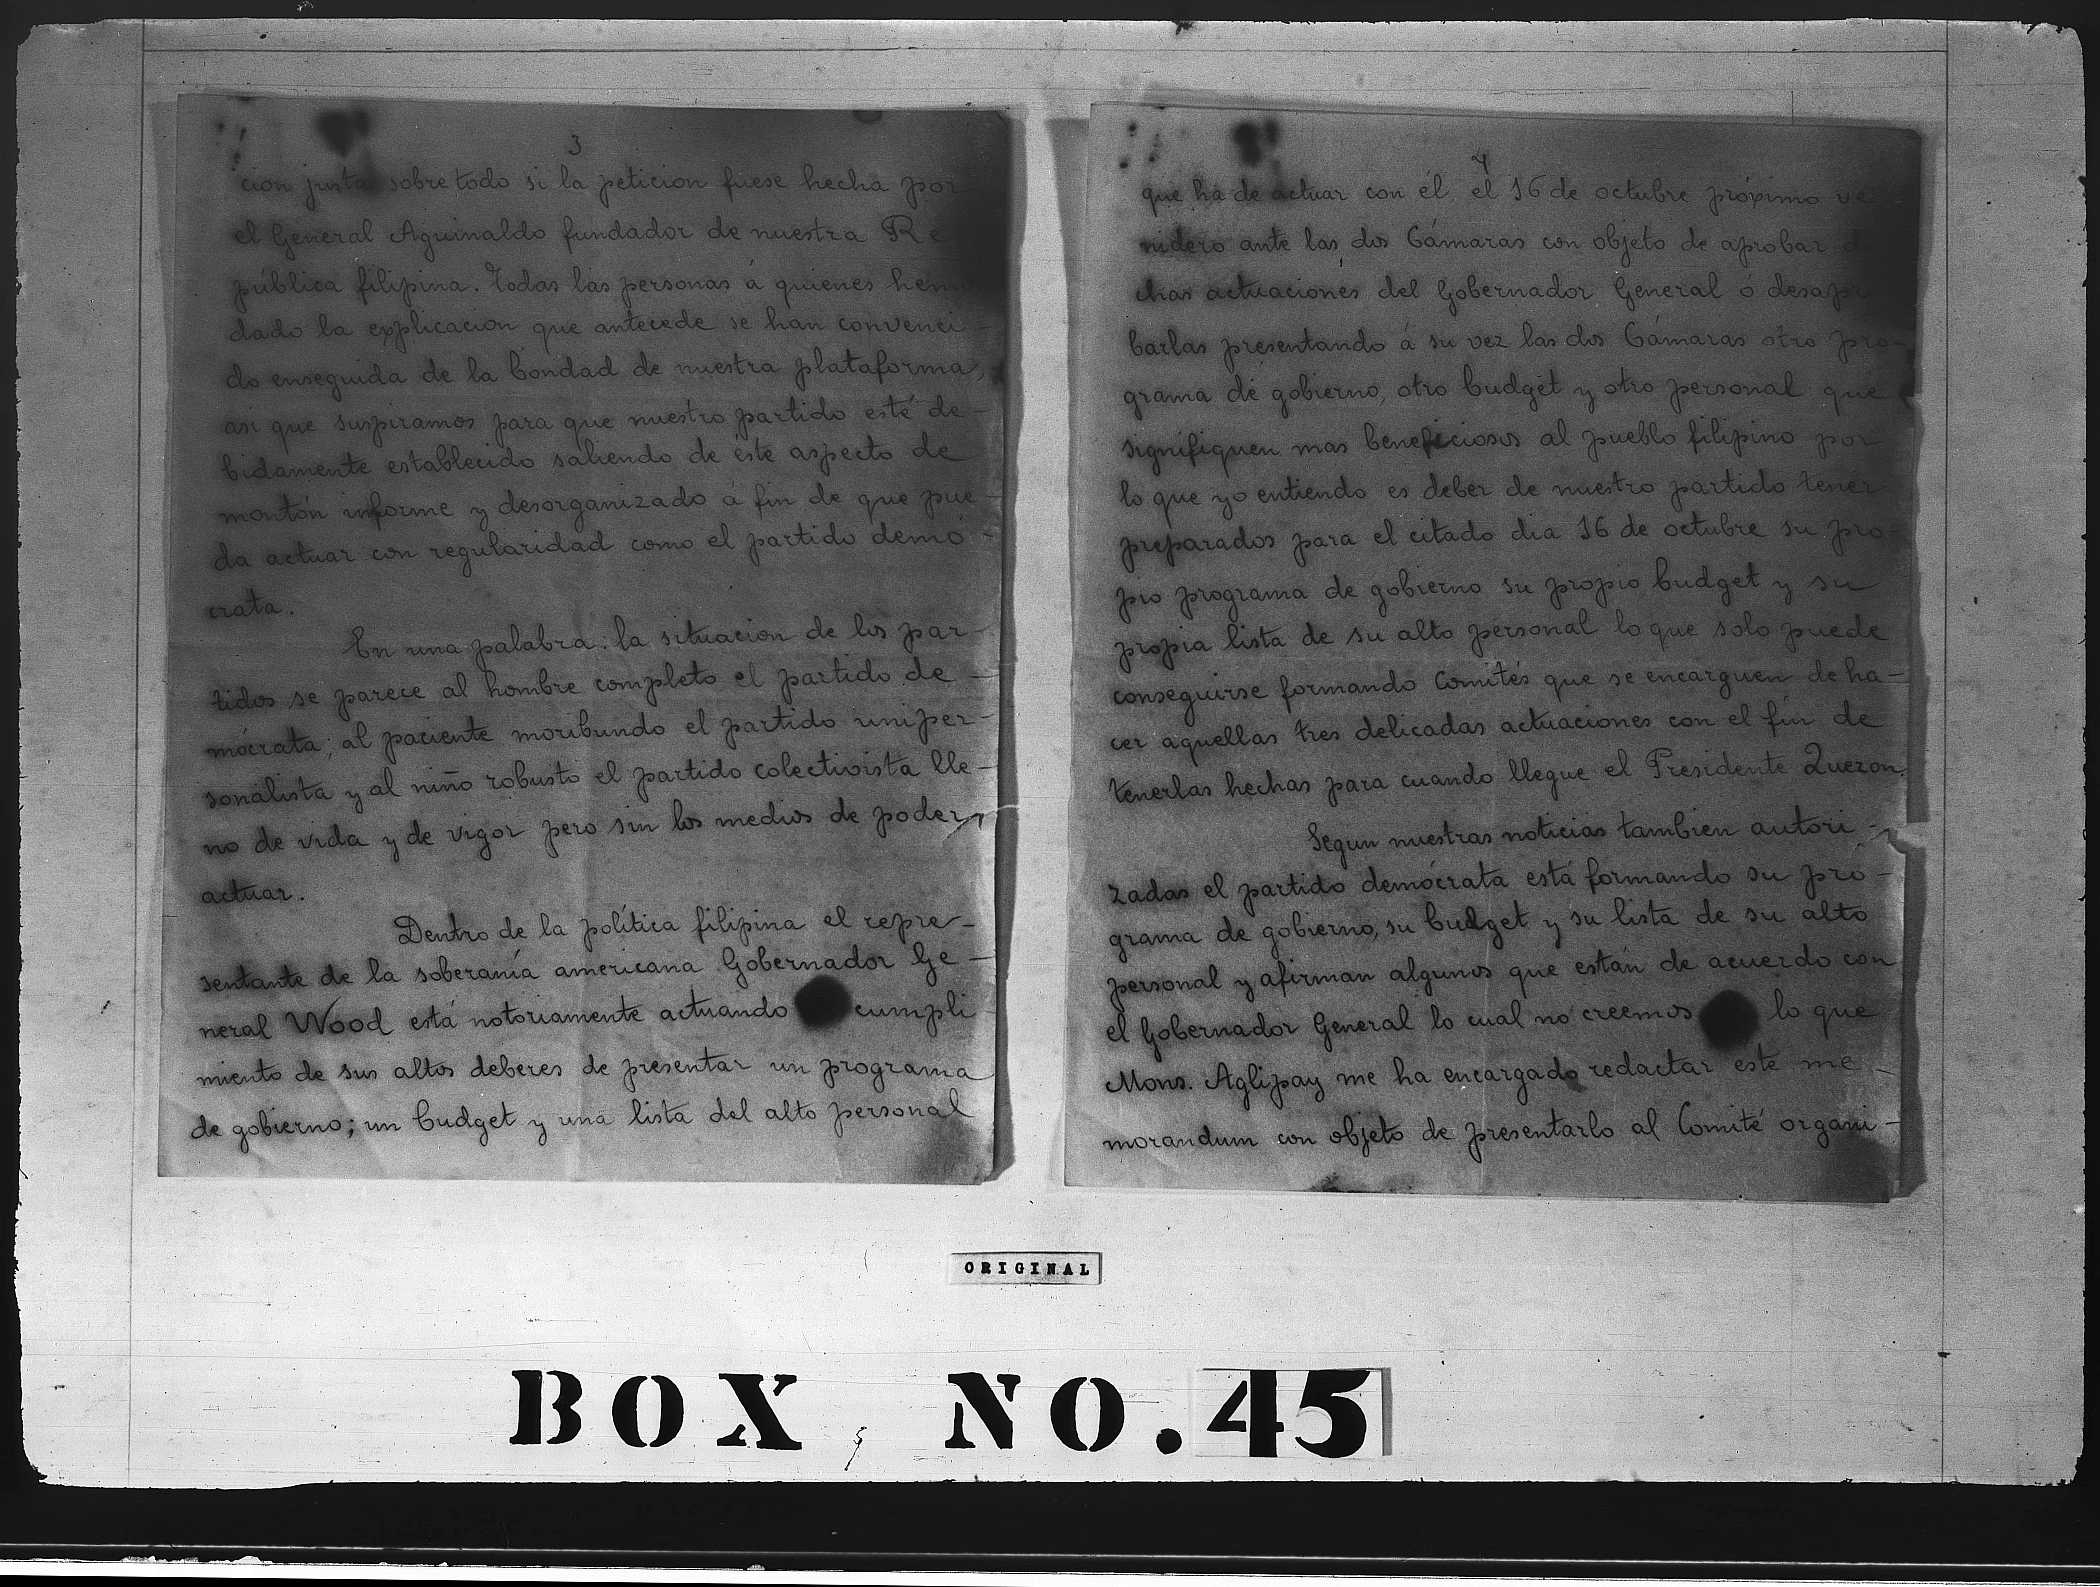 3
cion justa sobre todo si la peticion fuese hecha por
el General Aguinaldo fundador de nuestra Re
pública filipina. Todas las personas á quienes hemo
dado la explicacion que antecede se han convenci-
do enseguida de la bondad de nuestra plataforma,
asi que suspiramos para que nuestro partido esté de-
bidamente establecido saliendo de éste aspecto de
montón informe y desorganizado á fin de que pue-
da actuar con regularidad como el partido demó-
crata.
En una palabra: la situacion de los par-
tidos se parece al hombre completo el partido de-
mócrata; al paciente moribundo el partido uniper-
sonalista y al niño robusto el partido colectivista lle-
no de vida y de vigor pero sin los medios de poder
actuar.
Dentro de la política filipina el repre-
sentante de la soberanía americana Gobernador Ge-
neral Wood está notoriamente actuando cumpli-
miento de sus altos deberes de presentar un programa
de gobierno; un budget y una lista del alto personal
4
que ha de actuar con él el 16 de octubre próximo ve
nidero ante las dos Cámaras con objeto de aprobar d
chas actuaciones del Gobernador General ó desapr
barlas presentando á su vez las dos Cámaras otro pro-
grama de gobierno, otro budget y otro personal que
signifiquen mas beneficiosos al pueblo filipino por
lo que yo entiendo es deber de nuestro partido tener
preparados para el citado dia 16 de octubre su pro-
pio programa de gobierno su propio budget y su
propia lista de su alto personal lo que solo puede
conseguirse formando Comités que se encarguen de ha-
cer aquellas tres delicadas actuaciones con el fin de
tenerlas hechas para cuando llegue el Presidente Quezon.
Segun nuestras noticias tambien autori-
zadas el partido demócrata está formando su pro-
grama de gobierno, su budget y su lista de su alto
personal y afirman algunos que están de acuerdo con
el Gobernador General lo cual no creemos lo que
Mons. Aglipay me ha encargado redactar este me-
morandum con objeto de presentarlo al Comité organi-
ORIGINAL
BOX NO. 45